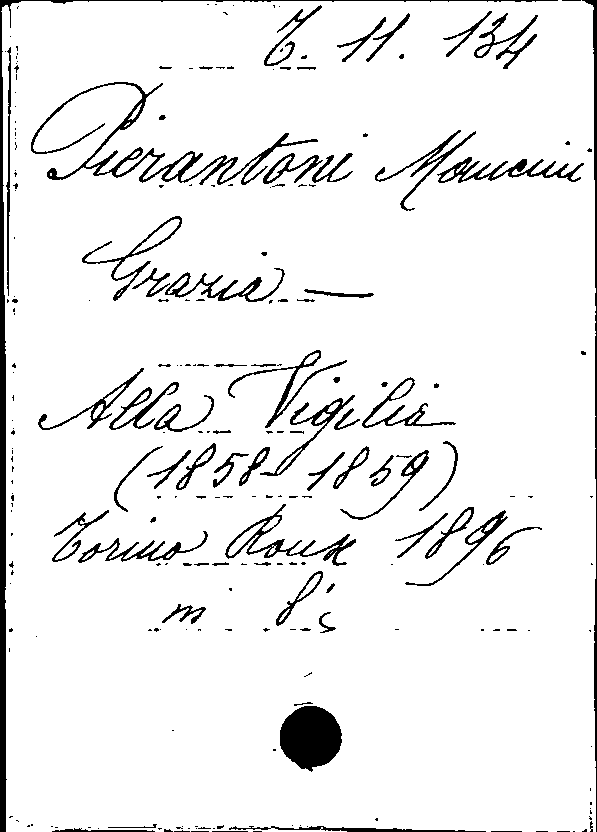 T. 11. 134
Pierantoni Mancini
Grazia —
Alla Vigilia
(1858-1859)
Torino Roux 1896
in 8: